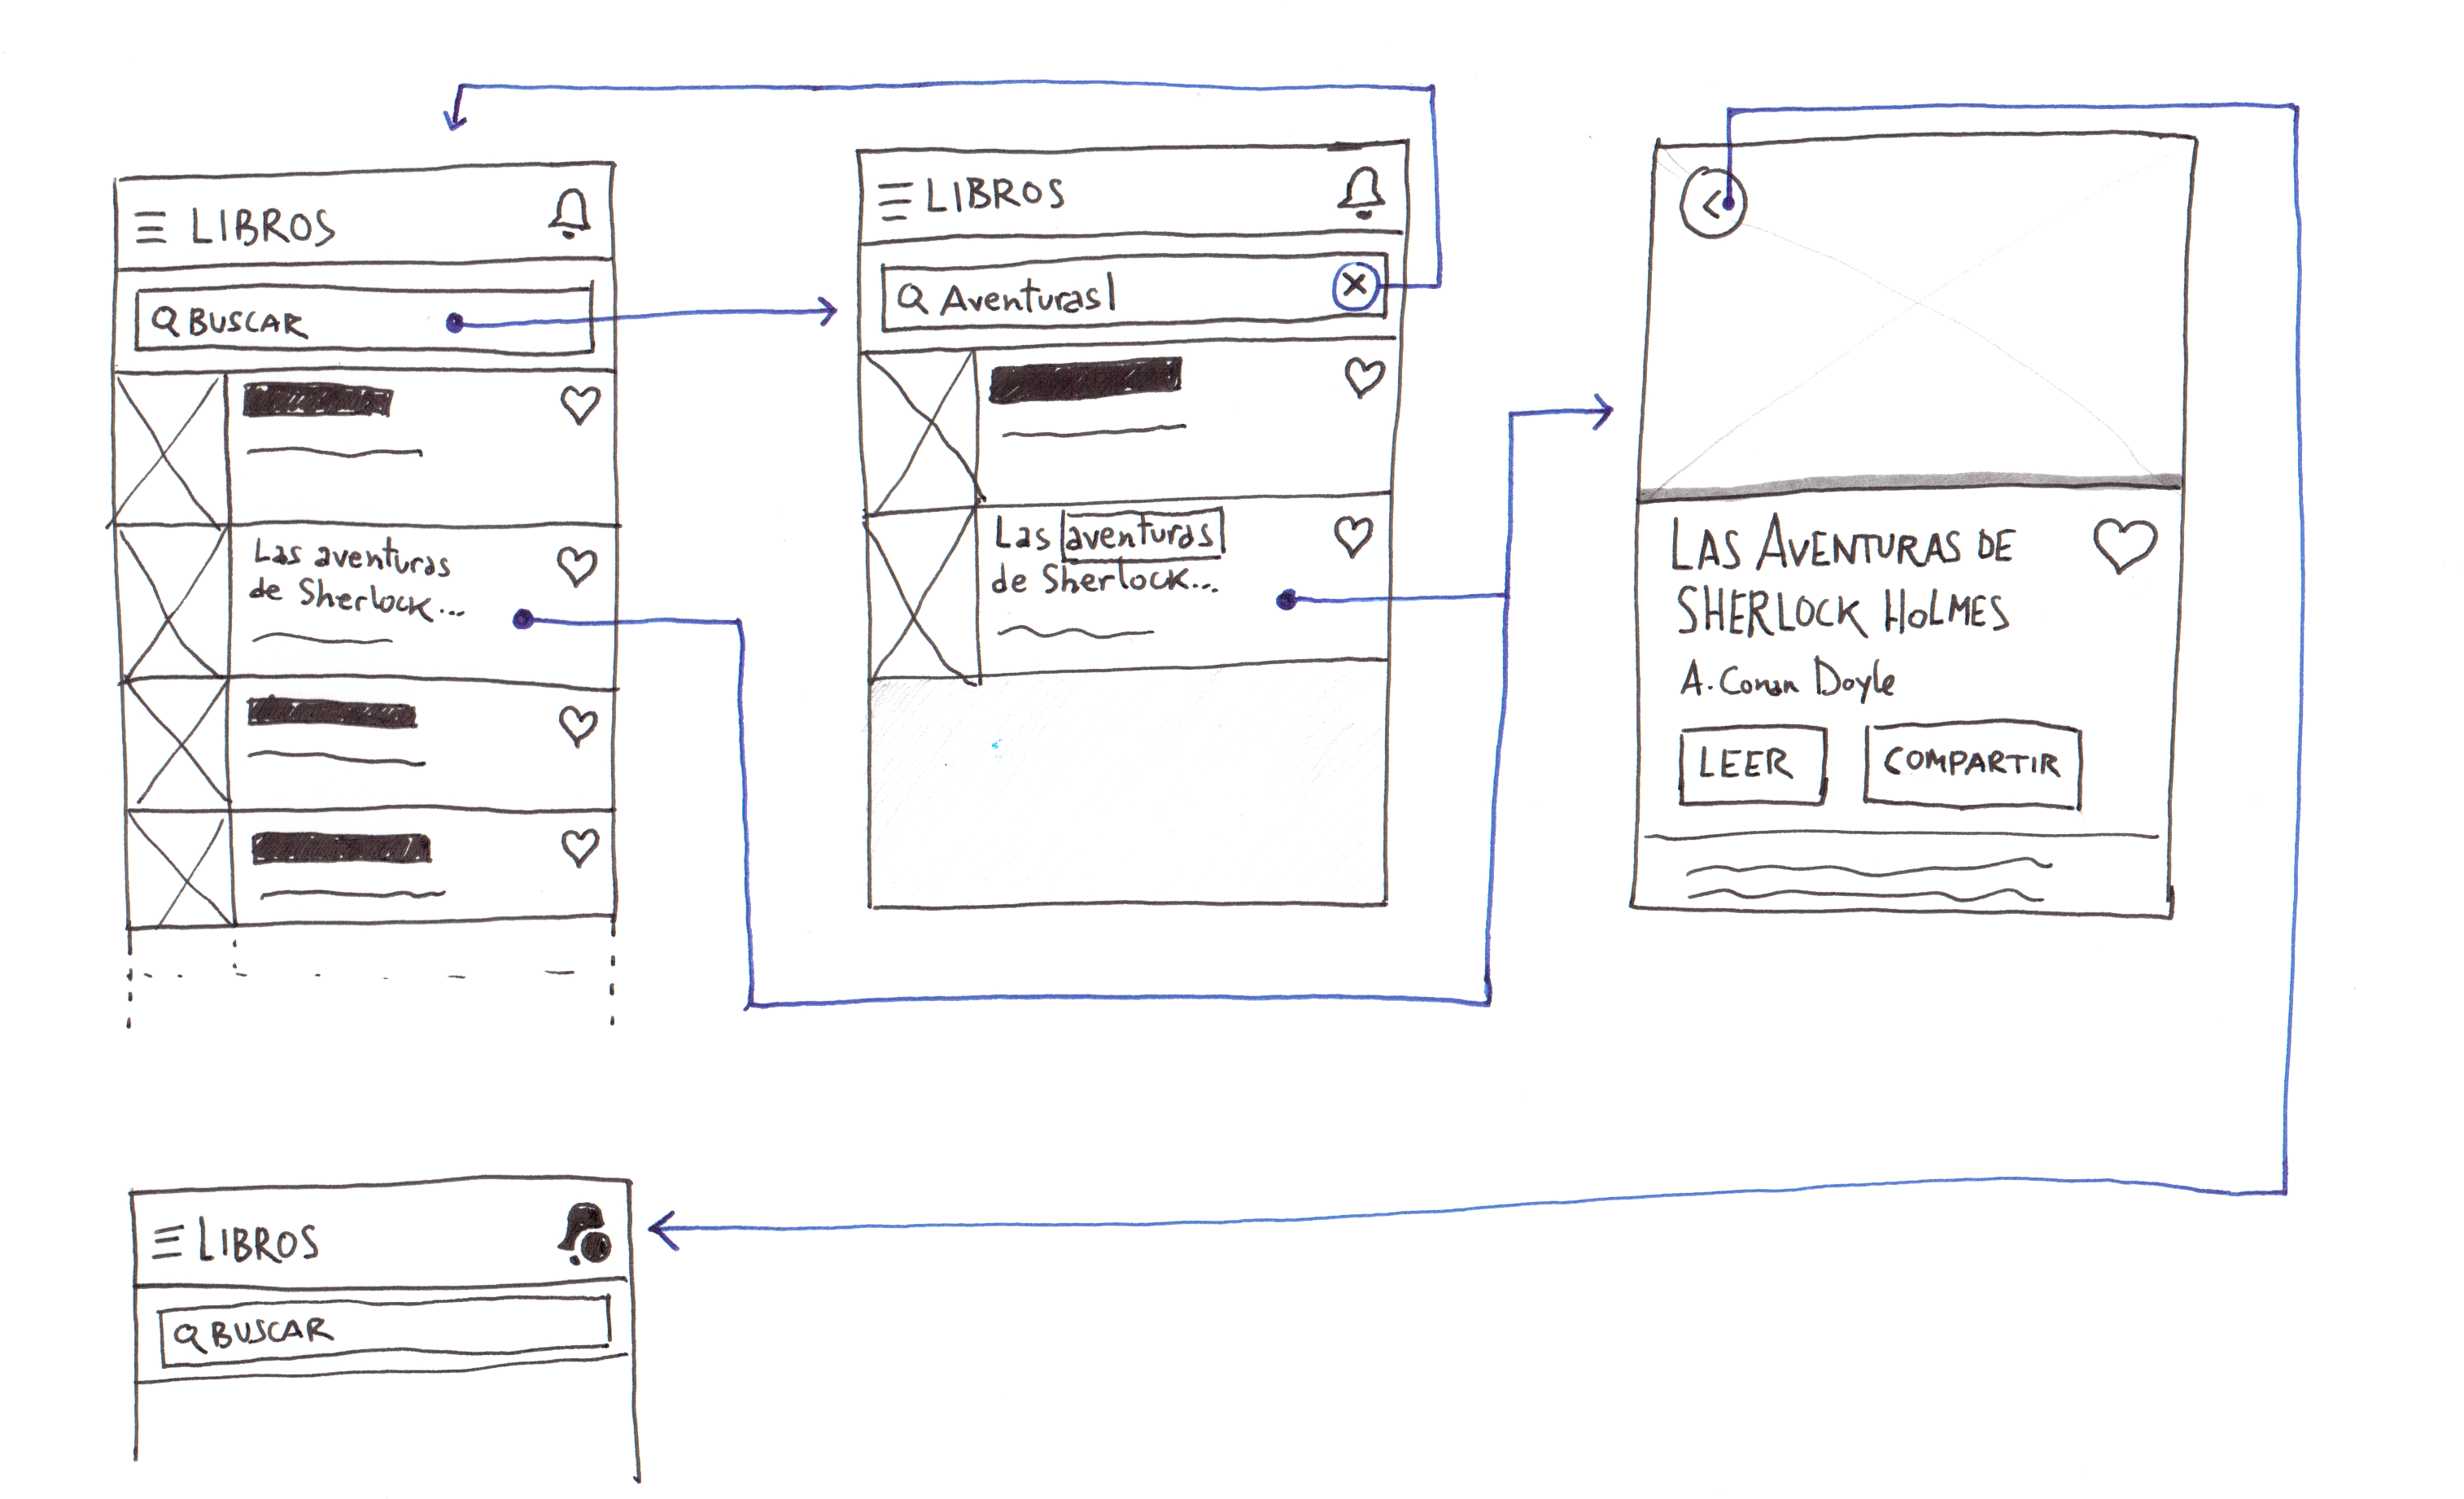 LIBROS
BUSCAR
Las aventuras
de Sherlock...
LIBROS
Aventuras
Las aventuras
de Sherlock...
LAS AVENTURAS DE
SHERLOCK HOLMES
A. Conan Doyle
LEER
COMPARTIR
LIBROS
BUSCAR